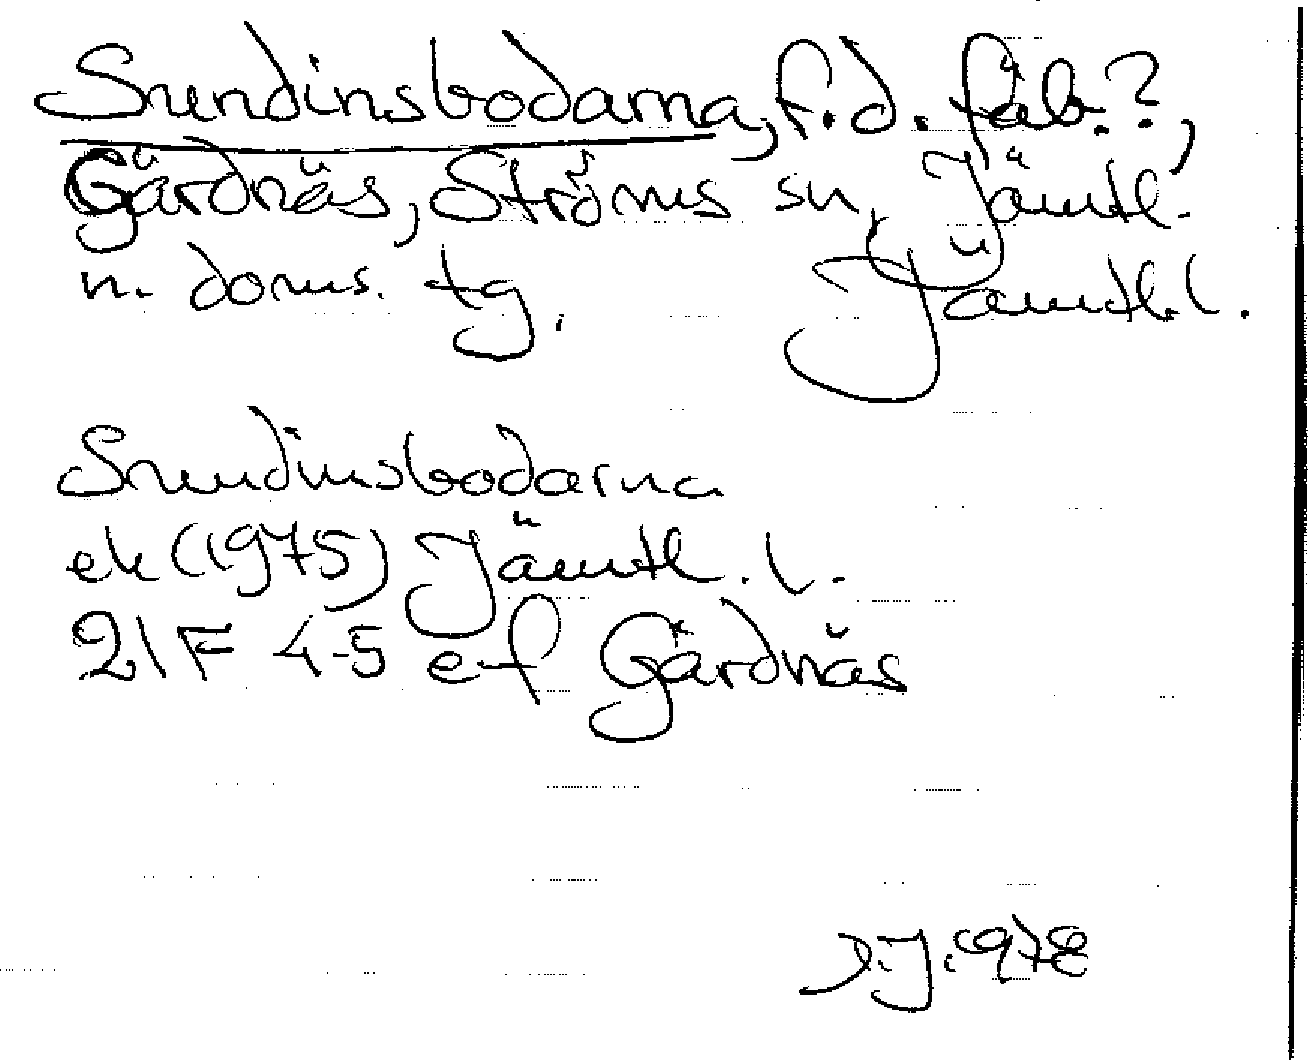 Sundinsbodarna, f.d. fäb.?,
Gärdnäs, Ströms sn, Jämtl.
n. doms. tg. Jämtl.l.
Sundinsbodarna
ek (1975) Jämtl. l.
21F 4-5 e-f Gärdnäs
J. 1978